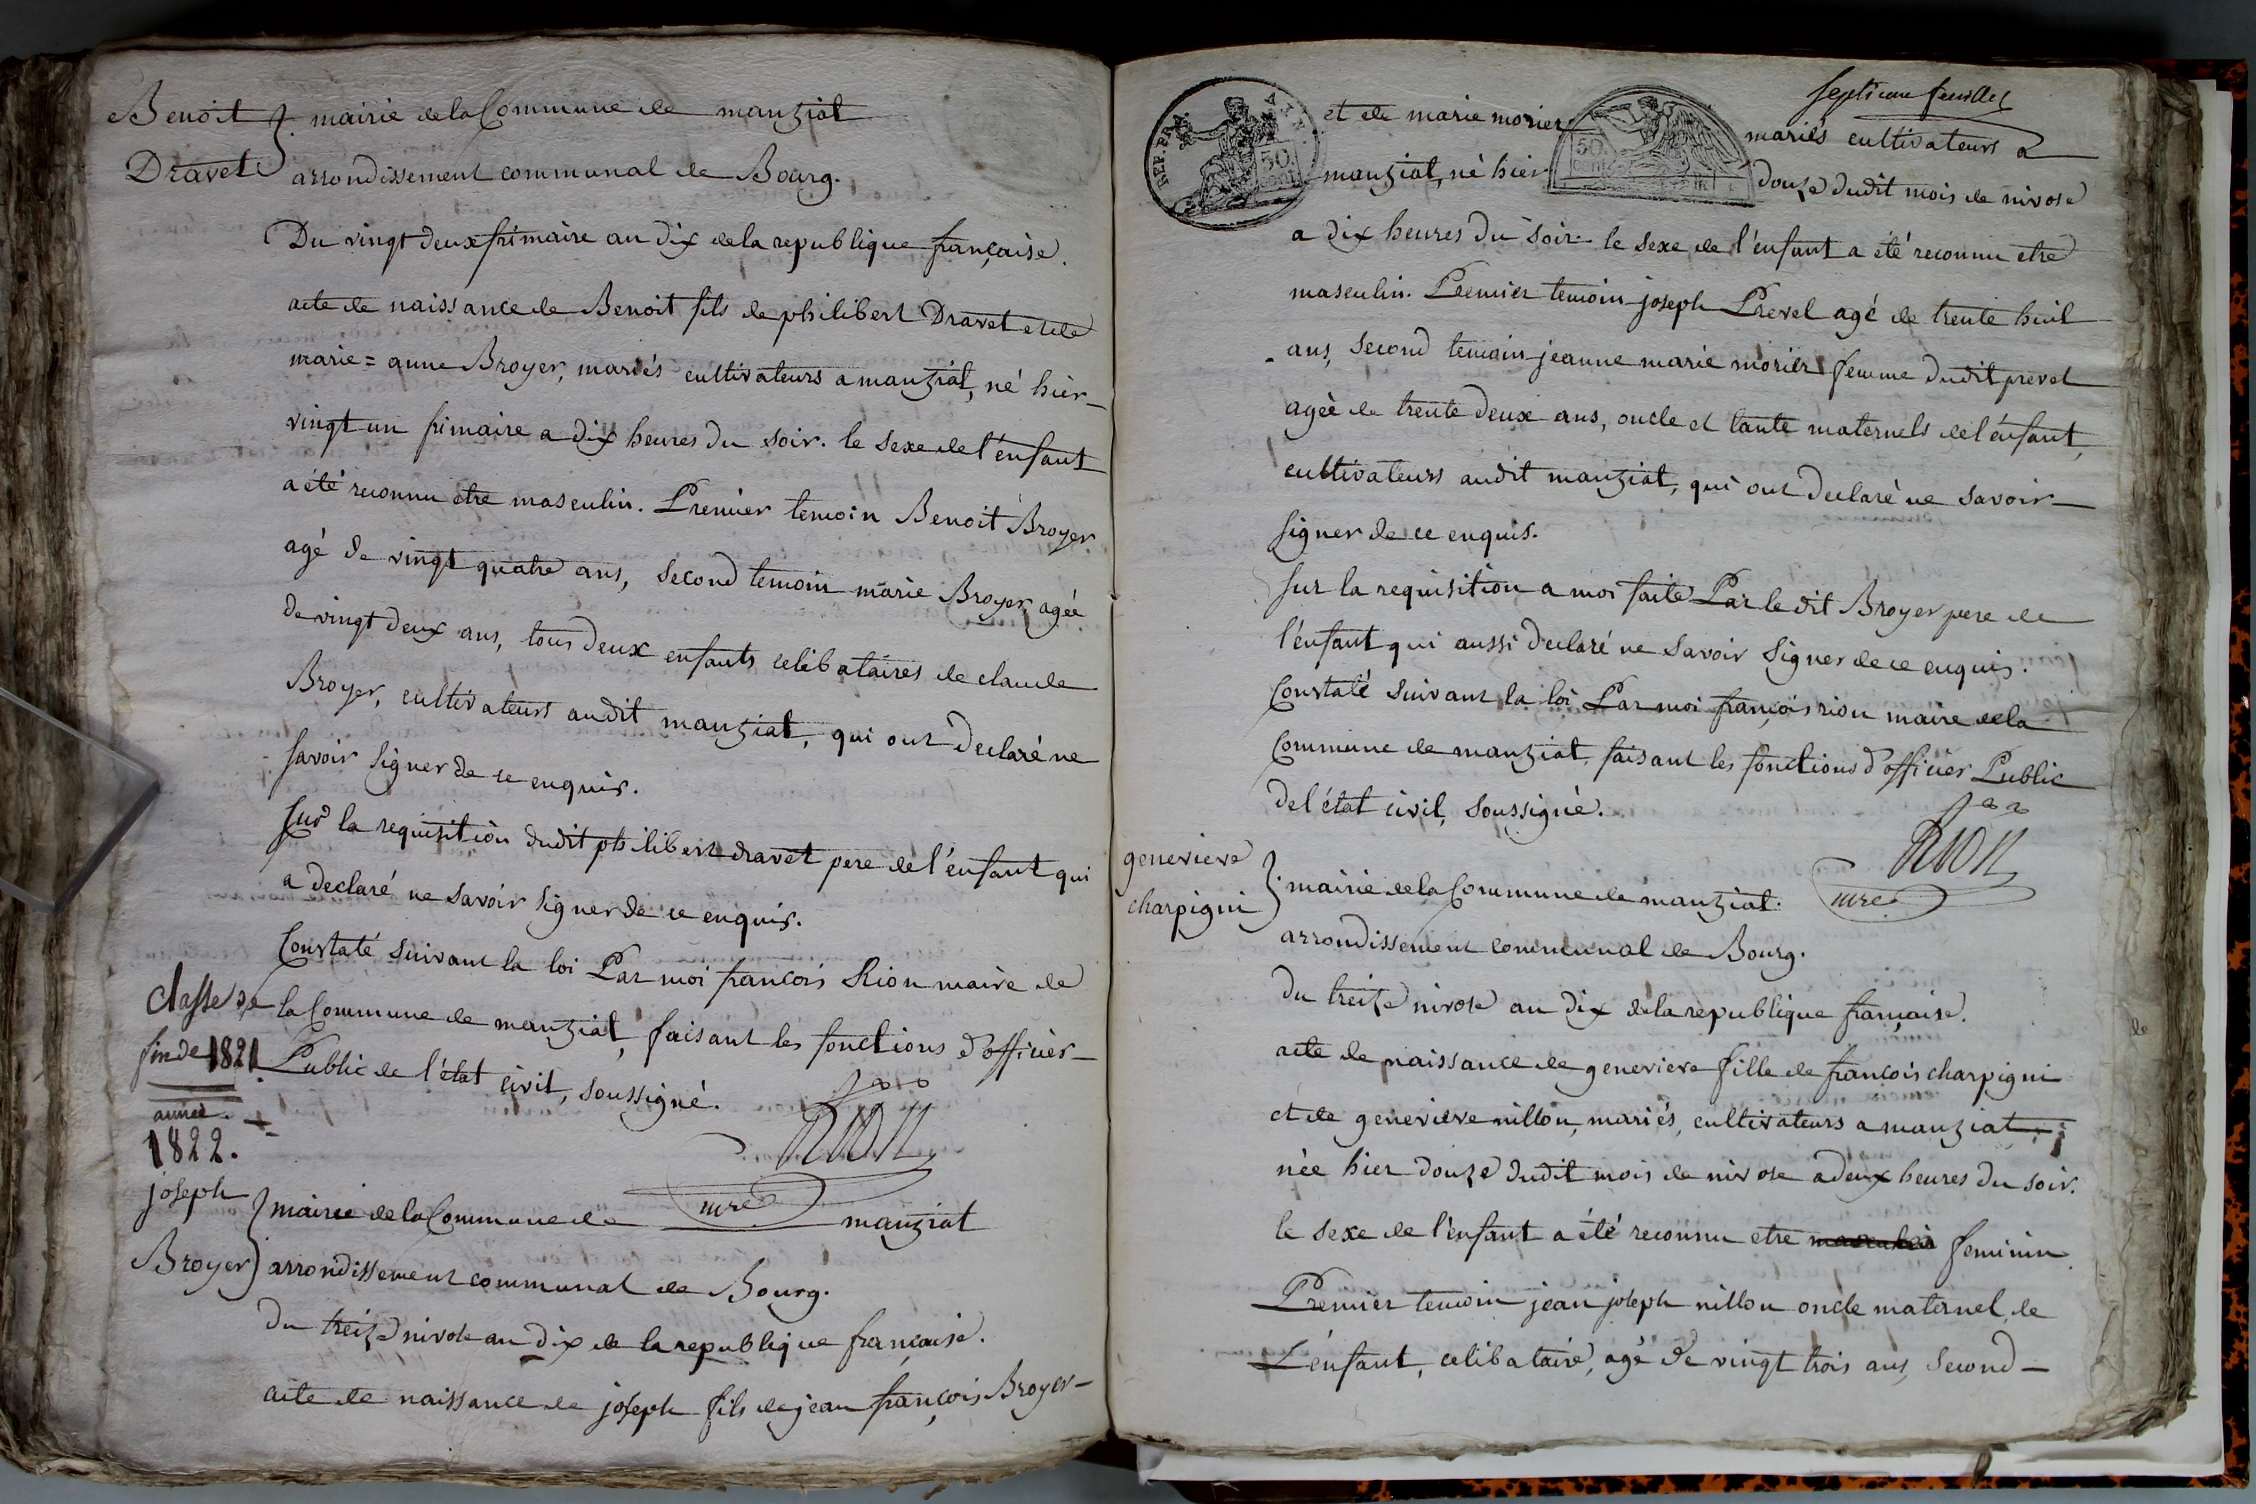 Benoit
Dravet
mairie de la Commune de manziat
arrondissement communal de Bourg.
Du vingt deux frimaire an dix de la republique française.
acte de naissance de Benoit fils de philibert Dravet et de
marie=anne Broyer, mariés cultivateurs a manziat, né hier
vingt un frimaire a dix heures du soir. le sexe de l'enfant
a été reconnu etre masculin. Premier temoin Benoit Broyer
agé de vingt quatre ans, second temoin marie Broyer agée
de vingt deux ans, tous deux enfants celibataires de claude
Broyer, cultivateurs audit manziat, qui ont declaré ne
savoir signer de ce enquis.
Sur la requisition dudit philibert dravet pere de l'enfant qui
a declaré ne savoir signer de ce enquis.
Constaté suivant la loi Par moi francois Rion maire de
la Commune de manziat, faisant les fonctions d'officier
Public de l'état civil, soussigné.
Rion
mre
Classe de
fin de 1821.
année.
1822.
joseph
Broyer
mairie de la Commune de manziat
arrondissement communal de Bourg.
Du treize nivose an dix de la republique francaise.
acte de naissance de joseph fils de jean françois Broyer
septieme feuillet
REP. FRA.
50.
cent
50.
cent
et de marie morier mariés cultivateurs a
manziat, né hier douze dudit mois de nivose
a dix heures du soir. le sexe de l'enfant a été reconnu etre
masculin. Premier temoin joseph Prevel agé de trente huit
ans, second temoin jeanne marie morier femme dudit prevel
agée de trente deux ans, oncle et tante maternels de l'enfant,
cultivateurs audit manziat, qui ont declaré ne savoir
signer de ce enquis.
Sur la requisition a moi faite Par le dit Broyer pere de
l'enfant qui aussi declaré ne savoir signer de ce enquis.
Constaté suivant la loi Par moi françois rion maire de la
Commune de manziat, faisant les fonctions d'officier Public
de l'état civil, soussigné.
Rion
mre
genevieve
charpigni
mairie de la Commune de manziat.
arrondissement communal de Bourg.
Du treize nivose an dix de la republique francaise.
acte de naissance de genevieve fille de francois charpigni
et de genevieve nillon, mariés, cultivateurs a manziat,
née hier douze dudit mois de nivose a deux heures du soir.
le sexe de l'enfant a été reconnu etre masculin feminin.
Premier temoin jean joseph nillon oncle maternel de
L'enfant, celibataire, agé de vingt trois ans, second